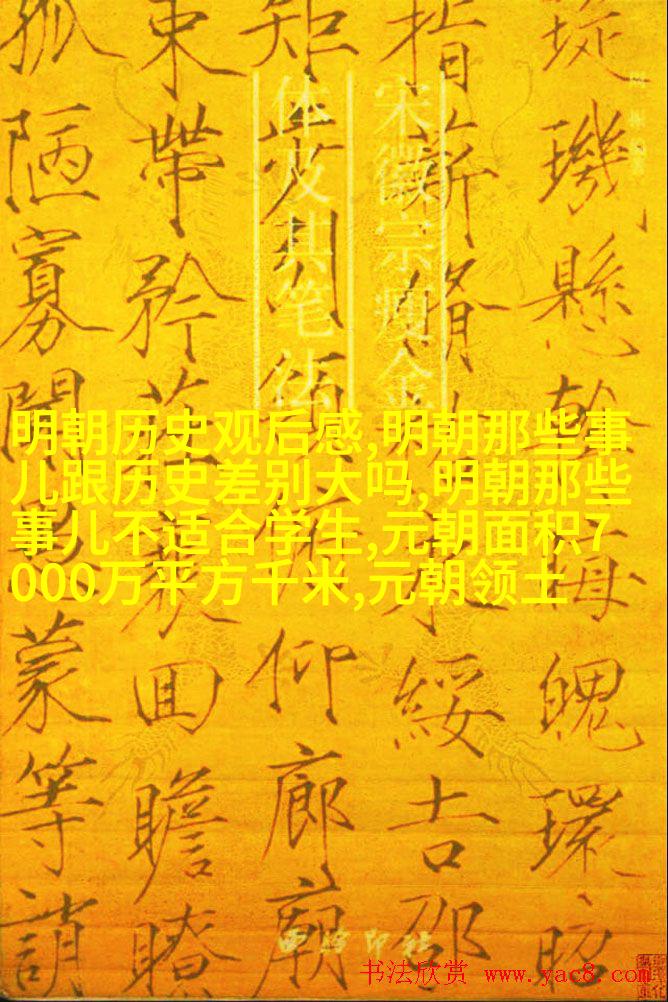 宋徽宗瘦金
体及其笔法
璇璣懸斡晦魄環照
指薪脩祜永綏吉劭
矩步引領俯仰廊廟
束帶矜莊回瞻眺
孤陋寡聞愚蒙等誚
明朝历史观后感,明朝那些事
儿跟历史差别大吗,明朝那些
事儿不适合学生,元朝面积7
000万平方千米,元朝领土
西泠印社
书法欣赏 www.yac8.com